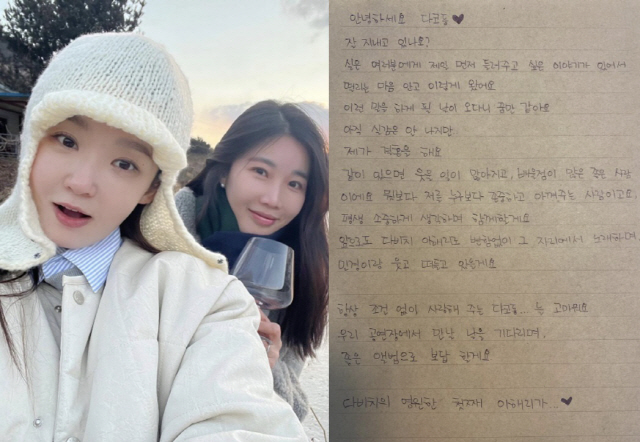 안녕하세요 다코들 ♥
잘 지내고 있나요?
실은 여러분에게 제일 먼저 들려주고 싶은 이야기가 있어서
떨리는 마음 안고 이렇게 왔어요
이런 말을 하게 될 날이 오다니 꿈만 같아요
아직 실감은 안 나지만
제가 결혼을 해요
같이 있으면 웃을 일이 많아지고, 배울점이 많은 좋은 사람
이에요 뭣보다 저를 누구보다 존중하고 아껴주는 사람이고요,
평생 소중하게 생각하며 함께할게요
앞으로도 다비치 이해리도 변함없이 그 자리에서 노래하며
민경이랑 웃고 떠들고 있을게요
항상 조건 없이 사랑해 주는 다코들... 늘 고마워요
우리 공연장에서 만날 날을 기다리며,
좋은 앨범으로 보답 할게요
다비치의 영원한 첫째 이해리가... ♥